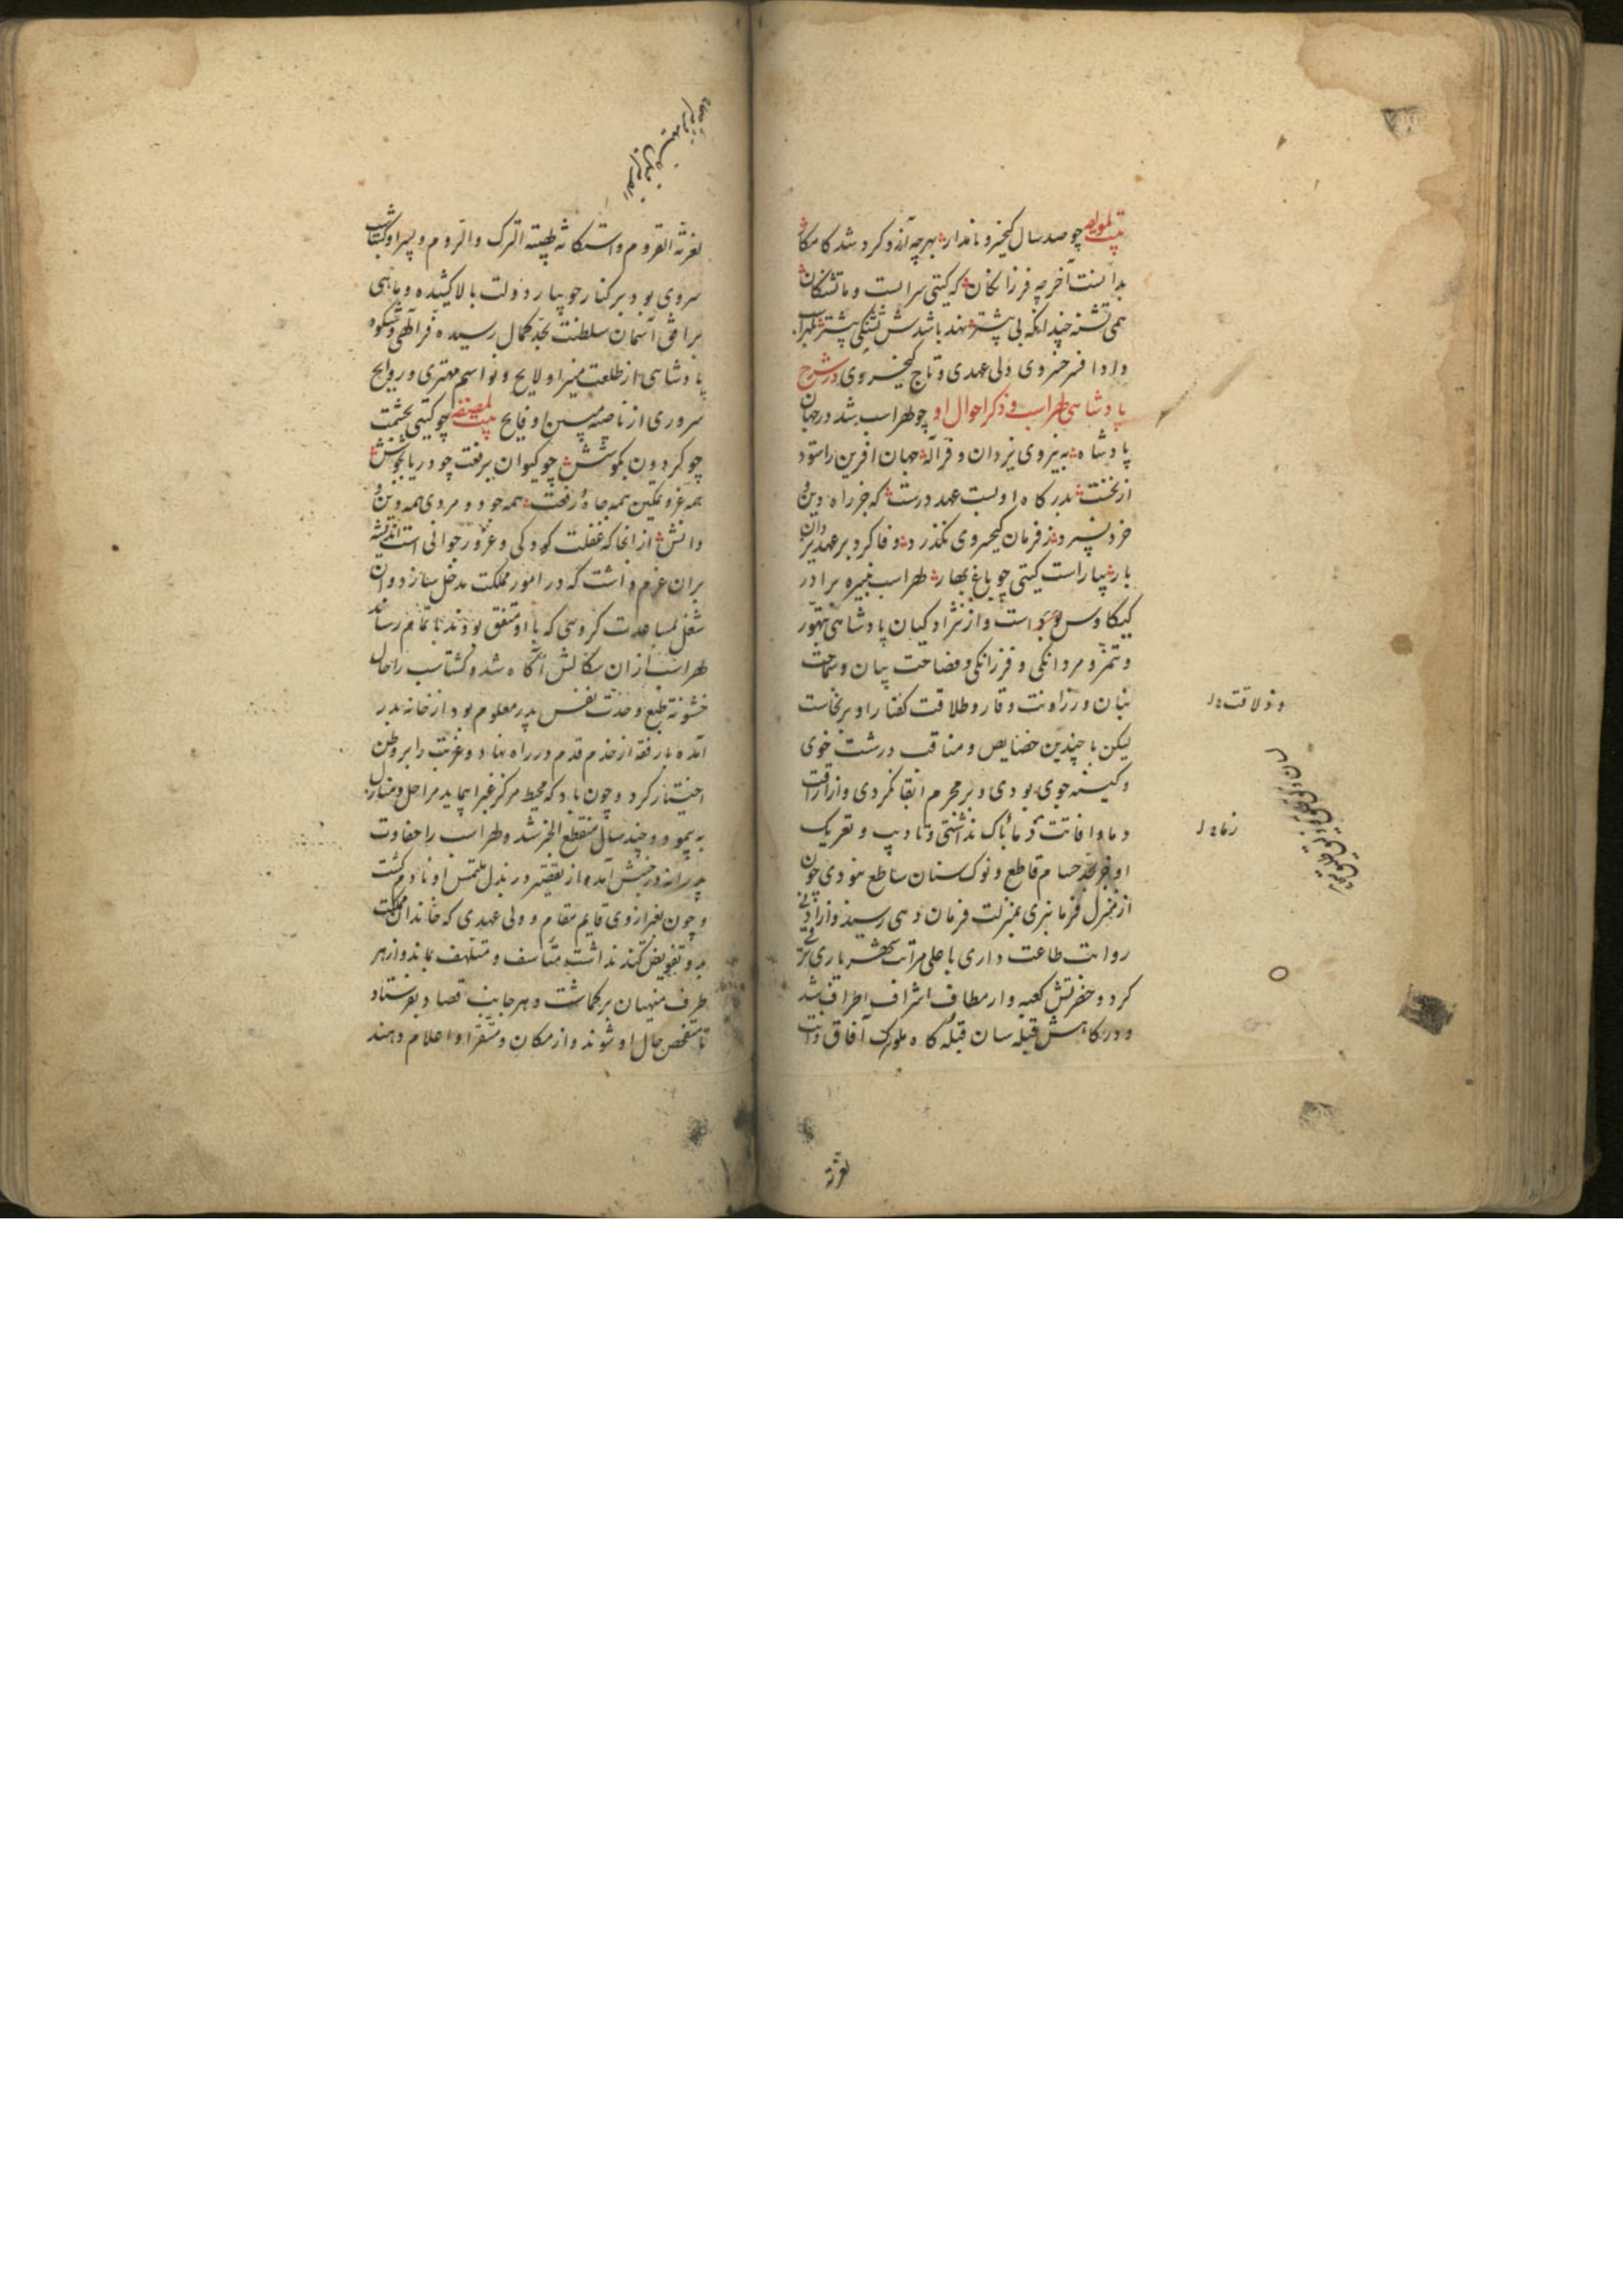 بیت لمؤلفه چو صد سال کیخسرو نامدار بهرچه آرزو کرد شد کامکار
بدانست آخر چه فرزانگان که گیتی سرابست و ما تشنگان
همی تشنه چندانکه بی پیشتر نهد باشدش تشنگی پیشتر لهراسب
داد افسر خسروی ولی عهدی و تاج کیخسروی در شرح
پادشاهی لهراسب و ذکر احوال او چو لهراسب شد در جهان
پادشاه به نیروی یزدان و فر اله جهان آفرین را ستود
از نخست بدرگاه او بست عهد درست که جز راه دین و
خرد نسپرد ز فرمان کیخسروی نگذرد وفا کرد بر عهد یزدان
بیاراست گیتی چو باغ بهار لهراسب نبیره برادر
کیکاوس بود است و از نژاد کیان پادشاهی متهور
و متنمر و مردانگی و فرزانگی و فصاحت بیان و سماحت
بنان و رزانت و وقار و طلاقت گفتار او برنخاست
لیکن با چندین خصایص و مناقب درشت خوی
و کینه جوی بودی و بر مجرم ابقا نکردی و از اراقت
دما و افاتت ذما باک نداشتی و تادیب و تعریک
او جز حسام قاطع و نوک سنان ساطع نبودی چون
از منزل فرمانبری بمنزلت فرمان دهی رسید و از ادنی
روایت طاعت داری باعلی مراتب شهریاری ترقی
کرد و حضرتش کعبه وار مطاف اشراف اطراف شد
و درگاهش قبله سان قبله گاه ملوک آفاق و انت
و ذلاقت
دماء
لعزته
لعزته القروم و استکانه لهیبته الترک و الروم و پسر او گشتاسب
سروی بود بر کنار جویبار دولت بالا کشیده و ماهی
بر افق آسمان سلطنت بحد کمال رسیده فر الهی و شکوه
پادشاهی از طلعت منیر او لایح و نواسم مهتری و روایح
سروری از ناصیه مبین او فایح بیت لمصنفه چو گیتی بحشمت
چو گردون بکوشش چو کیوان برفعت چو دریا بجوشش
همه عز و تمکین همه جاه و رفعت همه جود و مردی همه دین و
دانش از آنجا که غفلت کودکی و غرور جوانی است اندیشه
بران عزم داشت که در امور مملکت مدخل سازد و ان
شغل بمساعدت گروهی که با او متفق بودند باتمام رساند
لهراسب از ان سگالش آگاه شد و گشتاسب را حال
خشونة طبع و حدت نفس پدر معلوم بود از خانه بدر
آمده با رفقه از خدم قدم در راه نهاد و غربت را بر وطن
اختیار کرد و چون باد که محیط مرکز غبرا پیماید مراحل و منازل
به پیمود و چند سال منقطع الخبر شد و لهراسب را حفاوت
پدرانه در جنبش آمد و از تقصیر در بذل ملتمس او نادم گشت
و چون بغیر از وی قایم مقام و ولی عهدی که خاندان مملکت
بدو تفویض کند نداشت متأسف و متلهف بماند و از هر
طرف منهیان برگماشت و بهر جانب قصاد بفرستاد
تا متفحص حال او شوند و از مکان و مستقر او اعلام دهند